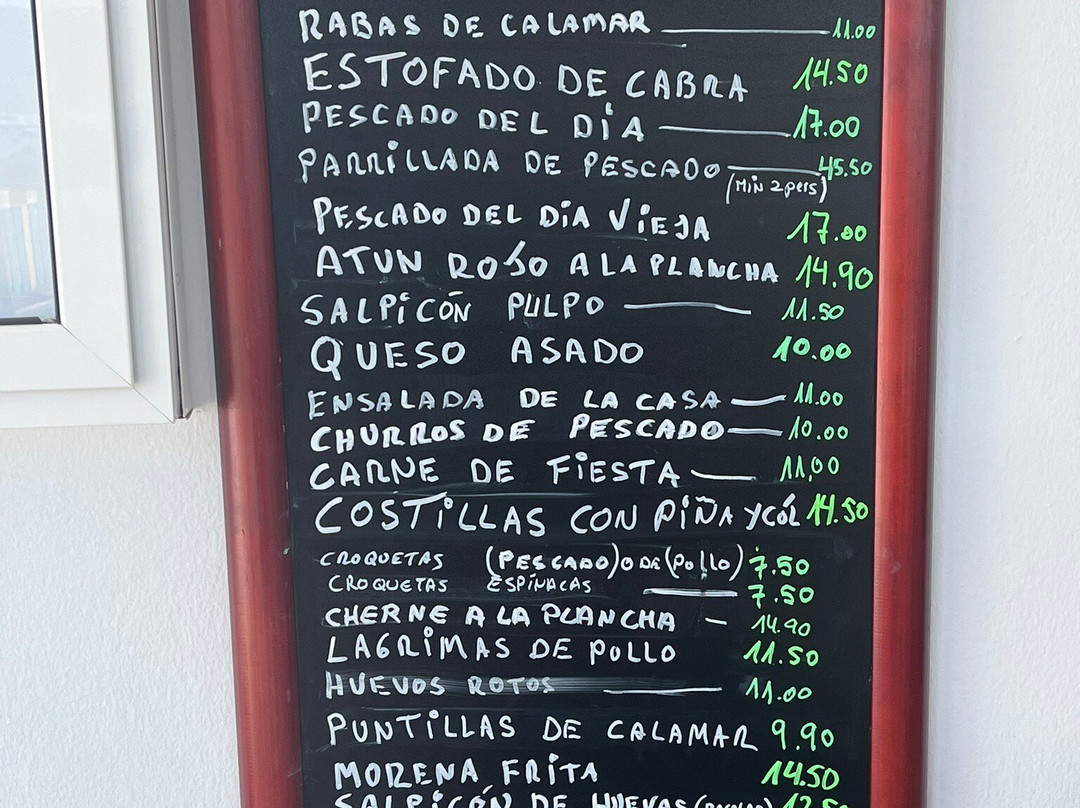 RABAS DE CALAMAR 11.00
ESTOFADO DE CABRA 14.50
PESCADO DEL DÍA 17.00
PARRILLADA DE PESCADO 45.50
(MIN 2 pers)
PESCADO DEL DÍA VIEJA 17.00
ATUN ROJO A LA PLANCHA 14.90
SALPICÓN PULPO 11.50
QUESO ASADO 10.00
ENSALADA DE LA CASA 11.00
CHURROS DE PESCADO 10.00
CARNE DE FIESTA 11,00
COSTILLAS CON PIÑA Y CÓL 14.50
CROQUETAS (PESCADO) O DE (POLLO) 7.50
CROQUETAS ESPINACAS 7.50
CHERNE A LA PLANCHA 14.90
LAGRIMAS DE POLLO 11.50
HUEVOS ROTOS 11.00
PUNTILLAS DE CALAMAR 9.90
MORENA FRITA 14.50
SALPICÓN DE HUEVAS